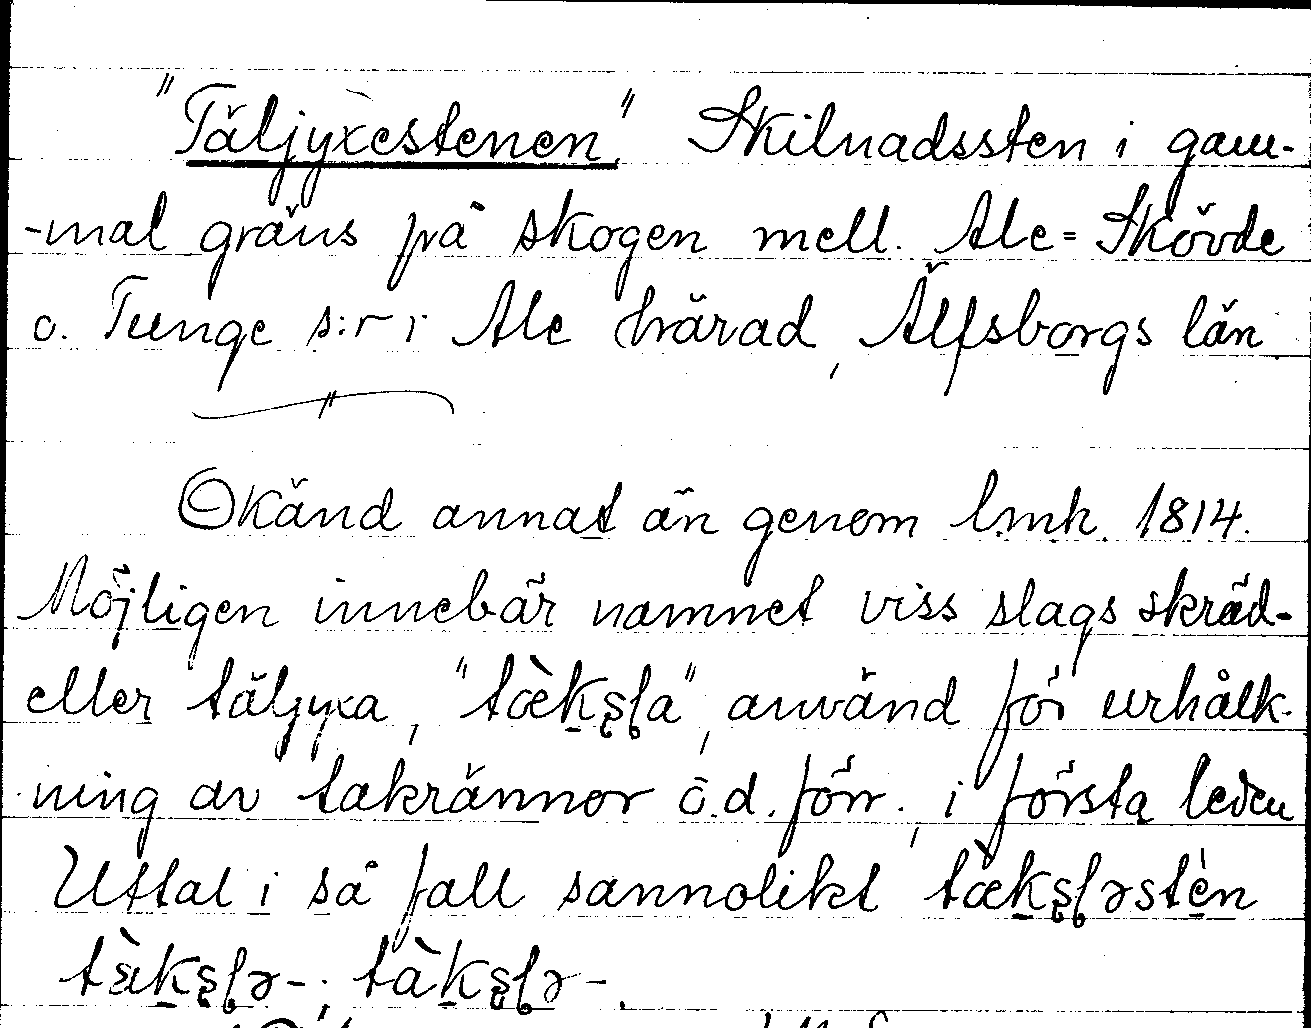 "Täljyxestenen" Skilnadssten i gam-
-mal gräns på skogen mell. Ale=Skövde
o. Tunge s:r i Ale härad, Älfsborgs län
Okänd annat än genom lmh. 1814.
Möjligen innebär namnet viss slags skräd-
eller täljyxa, "tæ̀kʂɭa", använd för urhålk-
ning av takrännor o.d. förr, i första leden
Uttal i så fall sannolikt tæ̀kʂɭəstèn
tæ̀kʂɭə-; tàkʂɭə-.